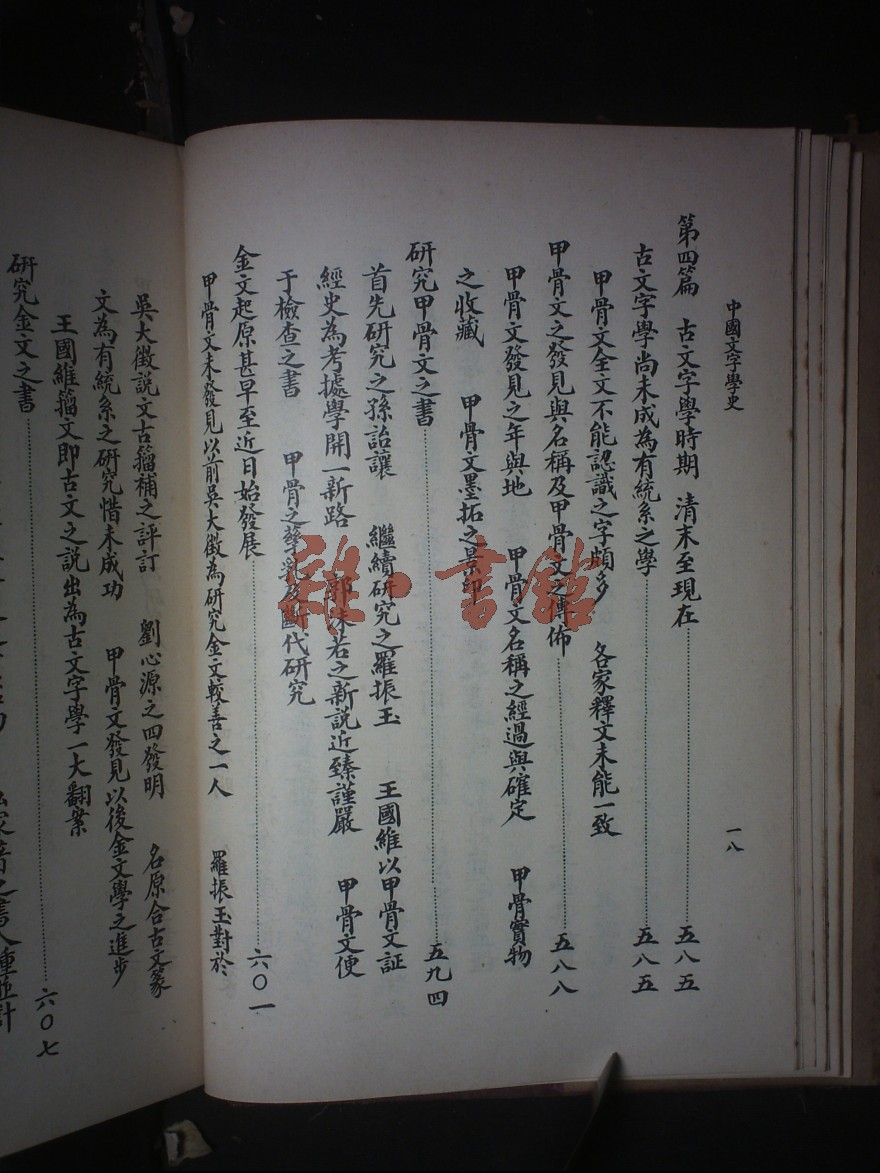 中國文字學史
一八
第四篇 古文字學時期 清末至現在 五八五
古文字學尚未成為有統系之學 五八五
甲骨文全文不能認識之字頗多 各家釋文未能一致
甲骨文之發見與名稱及甲骨文之傳佈 五八八
甲骨文發見之年與地 甲骨文名稱之經過與確定 甲骨實物
之收藏 甲骨文墨拓之景印
研究甲骨文之書 五九四
首先研究之孫詒讓 繼續研究之羅振玉 王國維以甲骨文証
經史為考據學開一新路 郭沫若之新說近臻謹嚴 甲骨文便
于檢查之書 甲骨之孳乳及斷代研究
金文起原甚早至近日始發展 六〇一
甲骨文未發見以前吳大徵為研究金文較善之一人 羅振玉對於
吳大徵說文古籀補之評訂 劉心源之四發明 名原合古文篆
文為有統系之研究惜未成功 甲骨文發見以後金文學之進步
王國維籀文即古文之說出為古文字學一大翻案
研究金文之書 六〇七
雜·書館